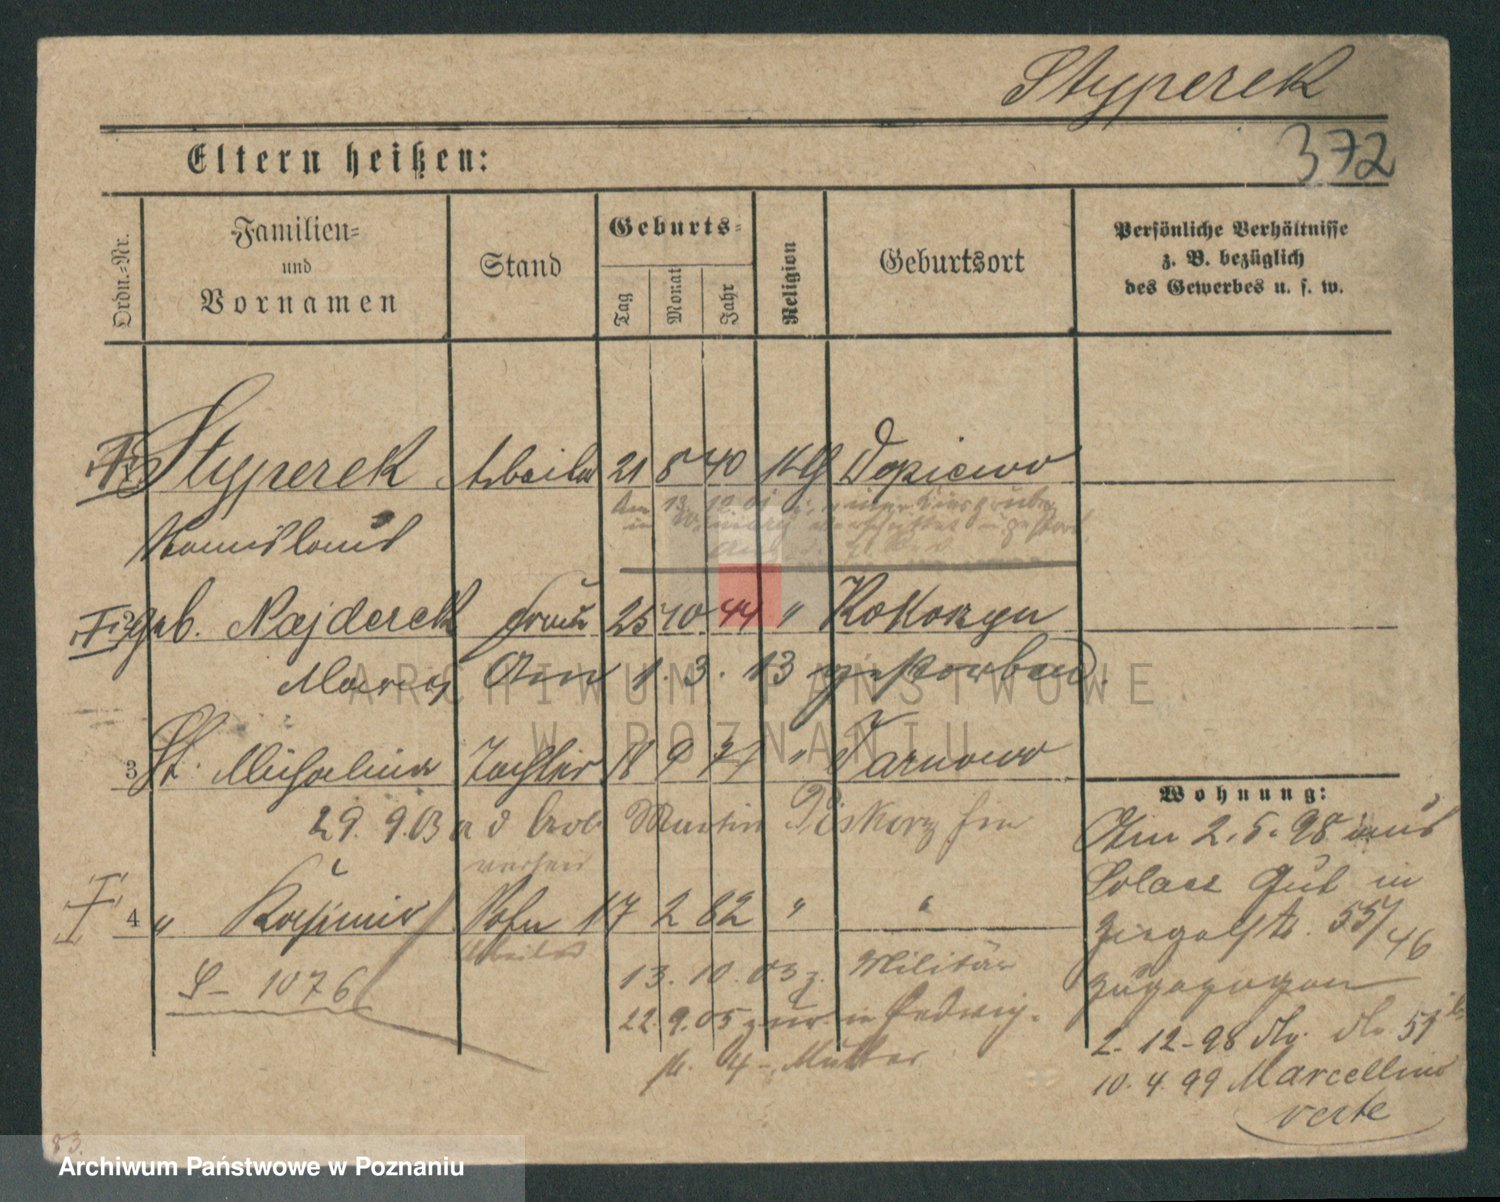 Styperek
372
Eltern heißen:
Ordn.-Nr.
Familien-
und
Vornamen
Stand
Geburts-
Tag
Monat
Jahr
Religion
Geburtsort
Persönliche Verhältnisse
z. B. bezüglich
des Gewerbes u. s. w.
Styperek Arbeiter 21 8 40 Kth Dopiewo
Am 13. 10. 01
in
Stanislaus
geb. Najderek Frau 25 10 44 " Kokorzyn
Maria Am 1. 3. 13 gestorben.
ARCHIWUM PAŃSTWOWE
W POZNANIU
3 St. Michalina Tochter 18 9 77 " Tarnowo
Wohnung:
29. 9. 03 a d Arb Martin Piskorz
Am 2. 5. 98 aus
Solacz Gut in
4 " Kasimir Sohn 17 2 82 " "
Arbeiter
Ziegelstr. 55/46
zugezogen
S- 1076
13. 10. 03 z. Militär
22. 9. 05 zur. in Hedwig-
str. 4 - Mutter
2. 12. 98
10. 4. 99 Marcellino
verte
83.
Archiwum Państwowe w Poznaniu